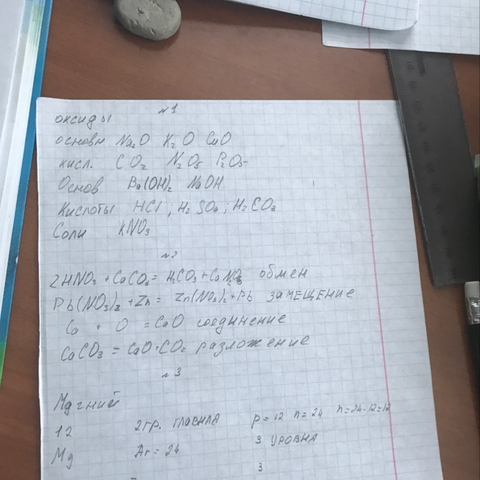 №1
оксиды
основн Na₂O K₂O CuO
кисл. CO₂ N₂O₅ P₂O₅
Основ Ba(OH)₂ NaOH
Кислоты HCl, H₂SO₄, H₂CO₃
Соли KNO₃
№2
2HNO₃ + CaCO₃ = H₂CO₃ + CaNO₃ обмен
Pb(NO₃)₂ + Zn = Zn(NO₃)₂ + Pb замещение
Ca + O = CaO соединение
CaCO₃ = CaO + CO₂ разложение
№3
Магний
12 2гр. главна p=12 n=24 n=24-12=12
Mg Ar=24 3 уровна
3